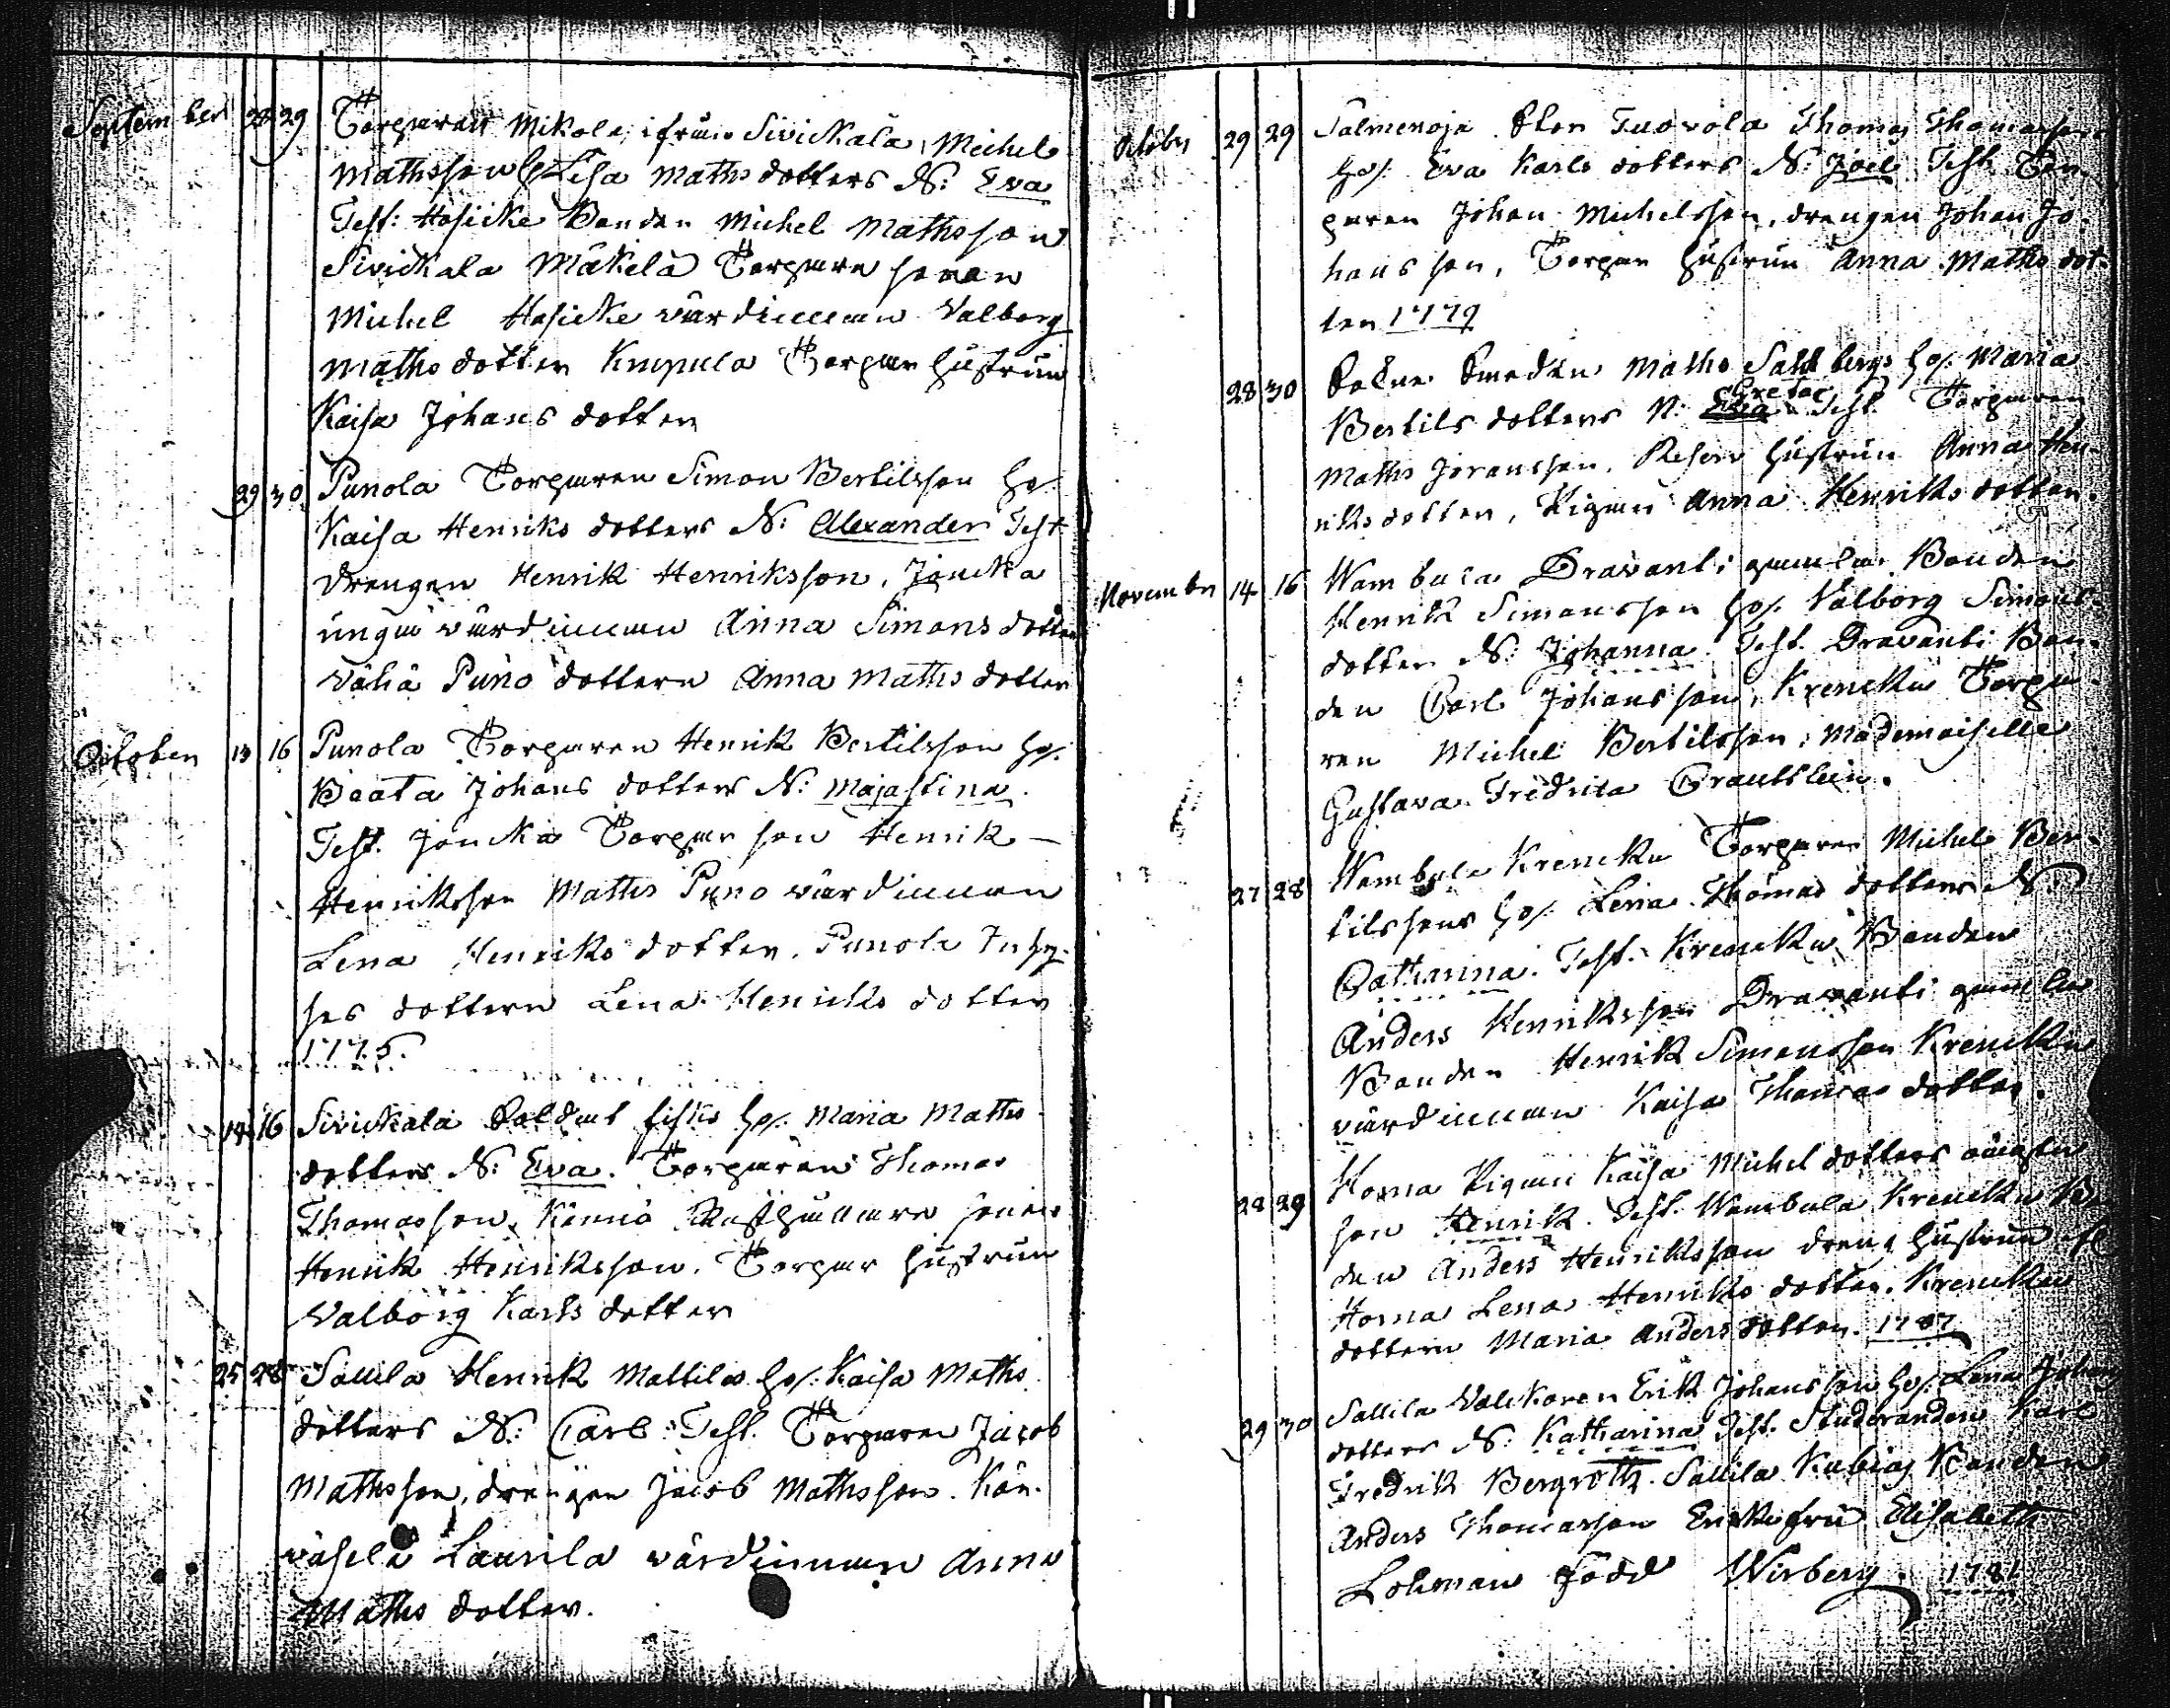 September 28 29 Torparen Mikola ifrån Sivickala, Michel
Mathsson & Lisa Maths dotters N: Eva
Test: Hosicke Bonden Michel Mathsson
Sivickala Mäkelä Torpare sonen
Michel Hosicke värdinnan Valborg
Maths dotter Knipula Torpar hustrun
Kaisa Johans dotter
29 30 Punola Torparen Simon Bertilsson hs.
Kaisa Henriks dotters N: Alexander Test
drengen Henrik Henriksson, Joncka
unga värdinnan Anna Simons dotter
Vähä Puno dottern Anna Maths dotter
October 13 16 Punola Torparen Henrik Bertilsson hs.
Beata Johans dotters N: Majastina.
Test. Joncka Torpar son Henrik
Henriksson Matts Puno värdinnan
Lena Henriks dotter, Punola Inhy-
ses dottern Lena Henriks dotter
1775.
14 16 Sivickala Soldat Fisks hs. Maria Maths
dotters N: Eva. Torparen Thomas
Thomasson, Kännö Rusthållare sonen
Henrik Henriksson. Torpar hustrun
Valborg Karls dotter
25 28 Sallila Henrik Mattilas hs. Kaisa Maths
dotters N: Carl Test. Torparen Jacob
Mathsson, drengen Jacob Mathsson. Kän-
väselä Laurila värdinnan Anna
Maths dotter.
October 29 29 Salmenoja Sten Tuovola Thomas Thomasson
hs. Eva Karls dotters N: Joel Test. Tor-
paren Johan Michelsson, drengen Johan Jo-
hansson, Torpar hustrun Anna Maths dot-
ter 1779
28 30 Sockne Smeden Maths Sahlbergs hs. Maria
Bertils dotters N: Eva Greta Test. Torparen
Maths Joransson, Reserv hustrun Anna Hen-
riks dotter, Pigan Anna Henriks dotter.
November 14 16 Wambula Dravanti gamla Bonden
Henrik Simonsson hs. Valborg Simons
dotter N: Johanna. Test. Dravanti Bon-
den Carl Johansson, Krencku Torpa-
ren Michel Bertilsson, Mademoiselle
Gustava Fredrica Grantstein.
27 28 Wambula Krencku Torparen Michel Ber-
tilssons hs. Lena Thomas dotters N:
Catharina. Test. Krencku Bonden
Anders Henriksson Dravanti gamla
Bonden Henrik Simonsson Krencku
värdinnan Kaisa Thomas dotter.
28 29 Horna Pigan Kaisa Michel dotters oäckta
son Henrik. Test. Wambula Krencku Bon-
den Anders Henriksson dreng hustrun
Horna Lena Henriks dotter. Krencku
dottern Maria Anders dotter. 1787
29 30 Sallila Valckaren Erik Johansson hs. Lena Johans
dotters N: Katharina Test. Studeranden Karl
Fredrik Bergroth. Sallila Kubiaj Bonden
Anders Thomasson Enkefru Elisabeth
Lohman Född Wirberg. 1781